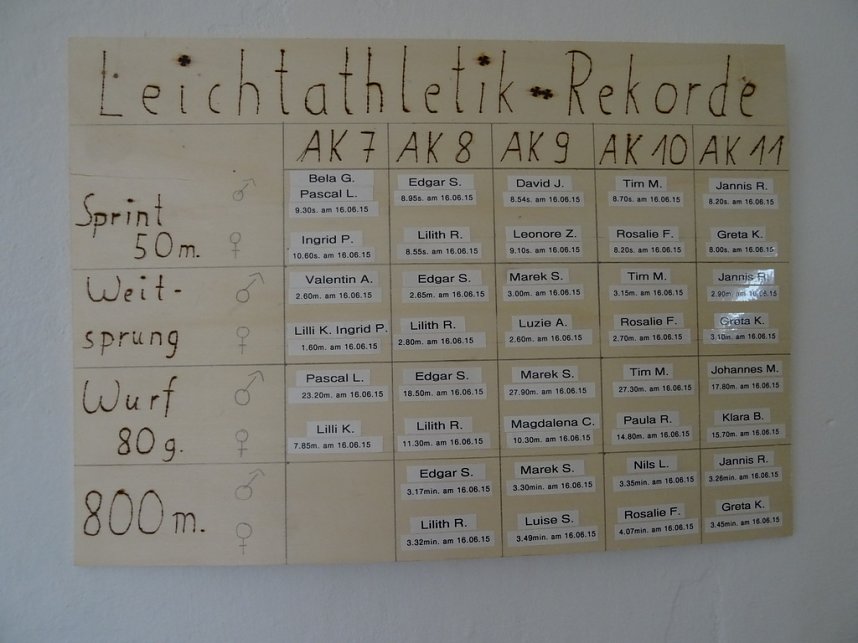 Leichtathletik-Rekorde
AK 7 AK 8 AK 9 AK 10 AK 11
Sprint 50m.
♂ Bela G. Pascal L. Edgar S. David J. Tim M. Jannis R.
9.30s. am 16.06.15 8.95s. am 16.06.15 8.54s. am 16.06.15 8.70s. am 16.06.15 8.20s. am 16.06.15
♀ Ingrid P. Lilith R. Leonore Z. Rosalie F. Greta K.
10.60s. am 16.06.15 8.55s. am 16.06.15 9.10s. am 16.06.15 8.20s. am 16.06.15 8.00s. am 16.06.15
Weit-
sprung
♂ Valentin A. Edgar S. Marek S. Tim M. Jannis R.
2.60m. am 16.06.15 2.65m. am 16.06.15 3.00m. am 16.06.15 3.15m. am 16.06.15 2.90m. am 16.06.15
♀ Lilli K. Ingrid P. Lilith R. Luzie A. Rosalie F. Greta K.
1.60m. am 16.06.15 2.80m. am 16.06.15 2.60m. am 16.06.15 2.70m. am 16.06.15 3.10m. am 16.06.15
Wurf
80g.
♂ Pascal L. Edgar S. Marek S. Tim M. Johannes M.
23.20m. am 16.06.15 18.50m. am 16.06.15 27.90m. am 16.06.15 27.30m. am 16.06.15 17.80m. am 16.06.15
♀ Lilli K. Lilith R. Magdalena C. Paula R. Klara B.
7.85m. am 16.06.15 11.30m. am 16.06.15 10.30m. am 16.06.15 14.80m. am 16.06.15 15.70m. am 16.06.15
800m.
♂ Edgar S. Marek S. Nils L. Jannis R.
3.17min. am 16.06.15 3.30min. am 16.06.15 3.35min. am 16.06.15 3.26min. am 16.06.15
♀ Lilith R. Luise S. Rosalie F. Greta K.
3.32min. am 16.06.15 3.49min. am 16.06.15 4.07min. am 16.06.15 3.45min. am 16.06.15